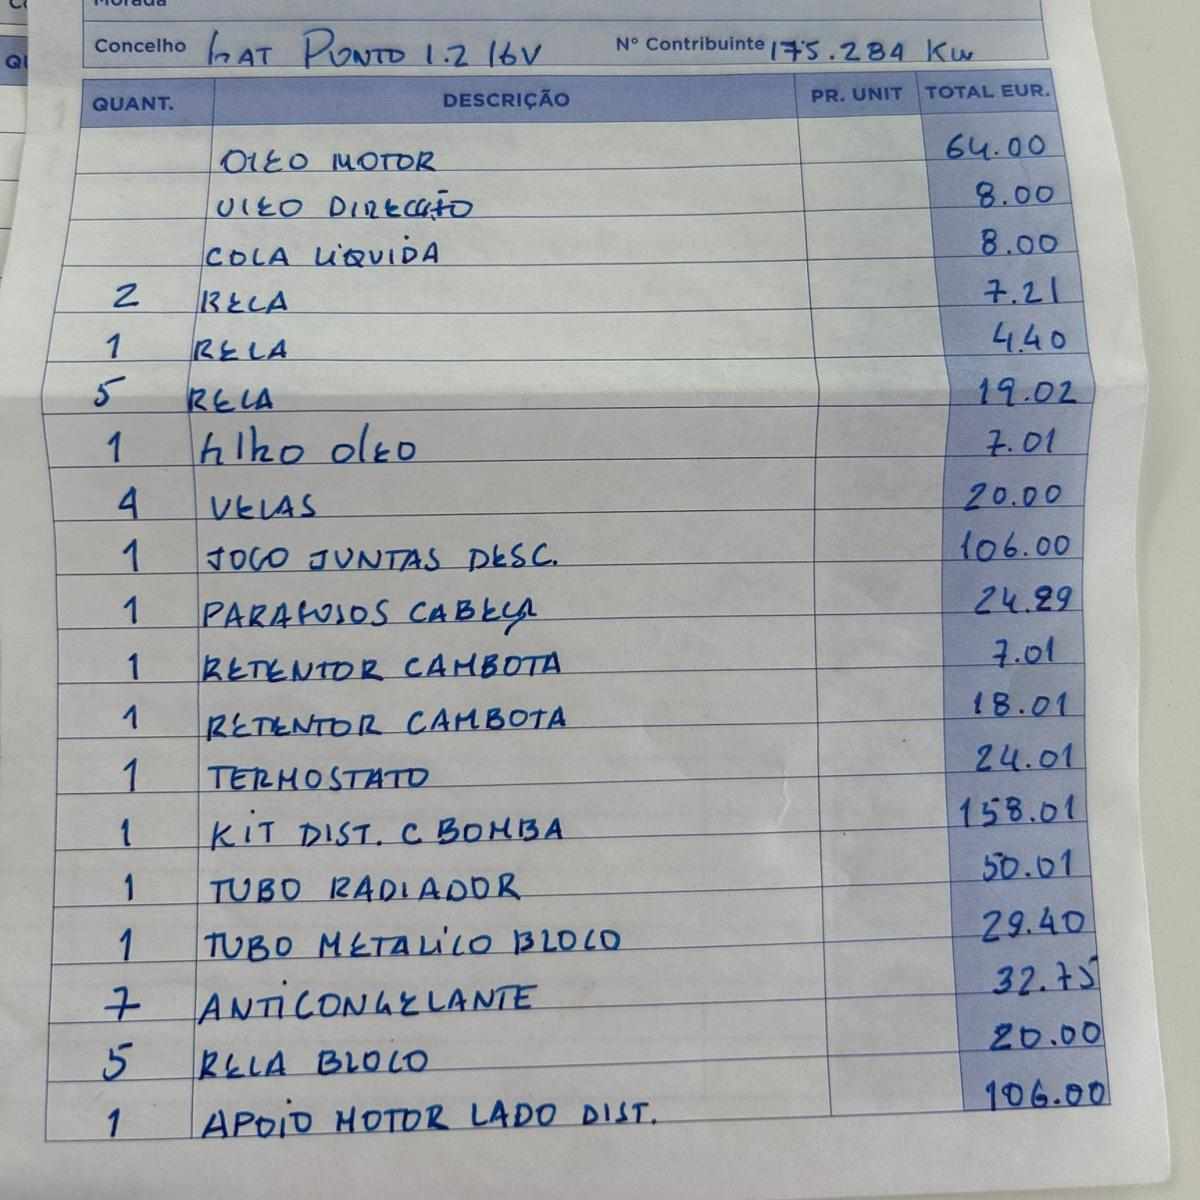 Morada
Concelho FIAT PUNTO 1.2 16V Nº Contribuinte 175.284 KM
QUANT. DESCRIÇÃO PR. UNIT TOTAL EUR.
OLEO MOTOR 64.00
OLEO DIRECÇÃO 8.00
COLA LIQUIDA 8.00
2 RELA 7.21
1 RELA 4.40
5 RELA 19.02
1 filtro oleo 7.01
4 VELAS 20.00
1 JOGO JUNTAS DESC. 106.00
1 PARAFUSOS CABEÇA 24.29
1 RETENTOR CAMBOTA 7.01
1 RETENTOR CAMBOTA 18.01
1 TERMOSTATO 24.01
1 KIT DIST. C BOMBA 158.01
1 TUBO RADIADOR 50.01
1 TUBO METALICO BLOCO 29.40
7 ANTICONGELANTE 32.75
5 RELA BLOCO 20.00
1 APOIO MOTOR LADO DIST. 106.00